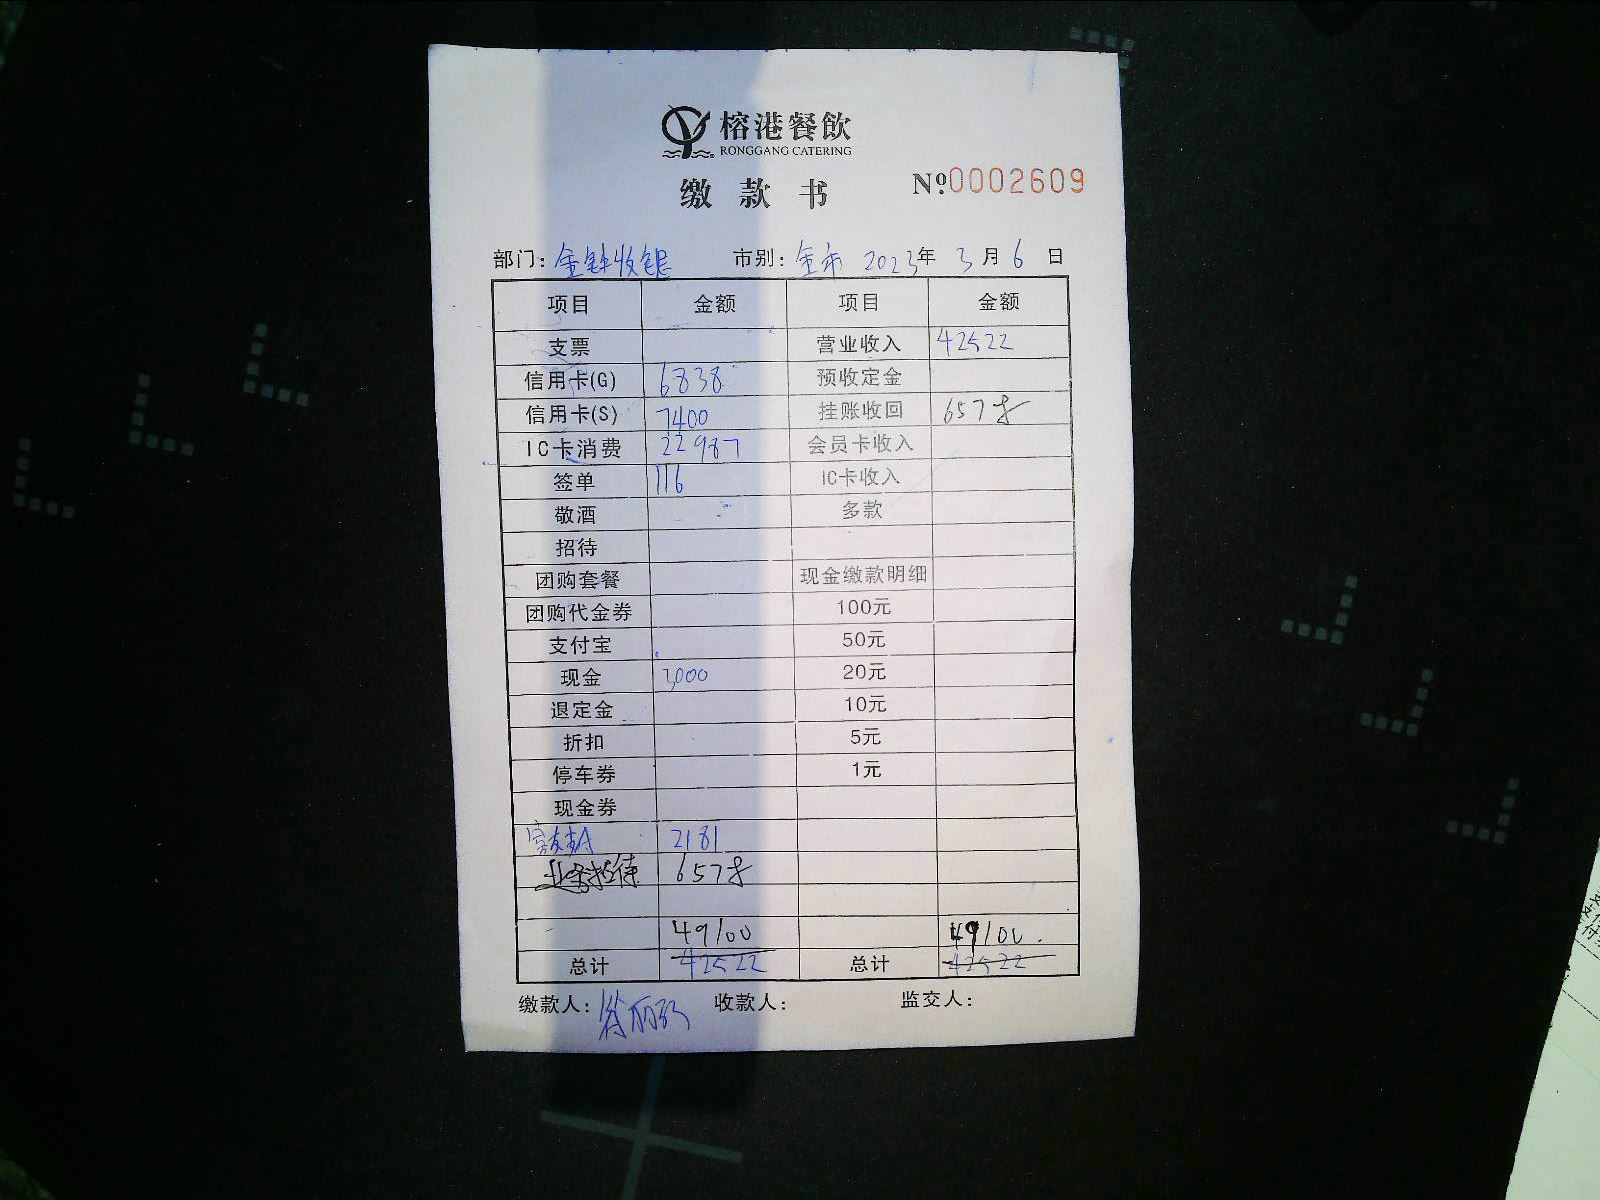 榕港餐飲
RONGGANG CATERING
缴款书 Nº.0002609
部门: 收银 市别: 全市 2023年 3月 6日
项目 金额 项目 金额
支票 营业收入 42522
信用卡(G) 6838 预收定金
信用卡(S) 7400 挂账收回 6578
IC卡消费 22987 会员卡收入
签单 116 IC卡收入
敬酒 多款
招待
团购套餐 现金缴款明细
团购代金券 100元
支付宝 50元
现金 3000 20元
退定金 10元
折扣 5元
停车券 1元
现金券
2181
业务招待 6578
49100 49100.
总计 42522 总计 42522
缴款人: 收款人: 监交人: